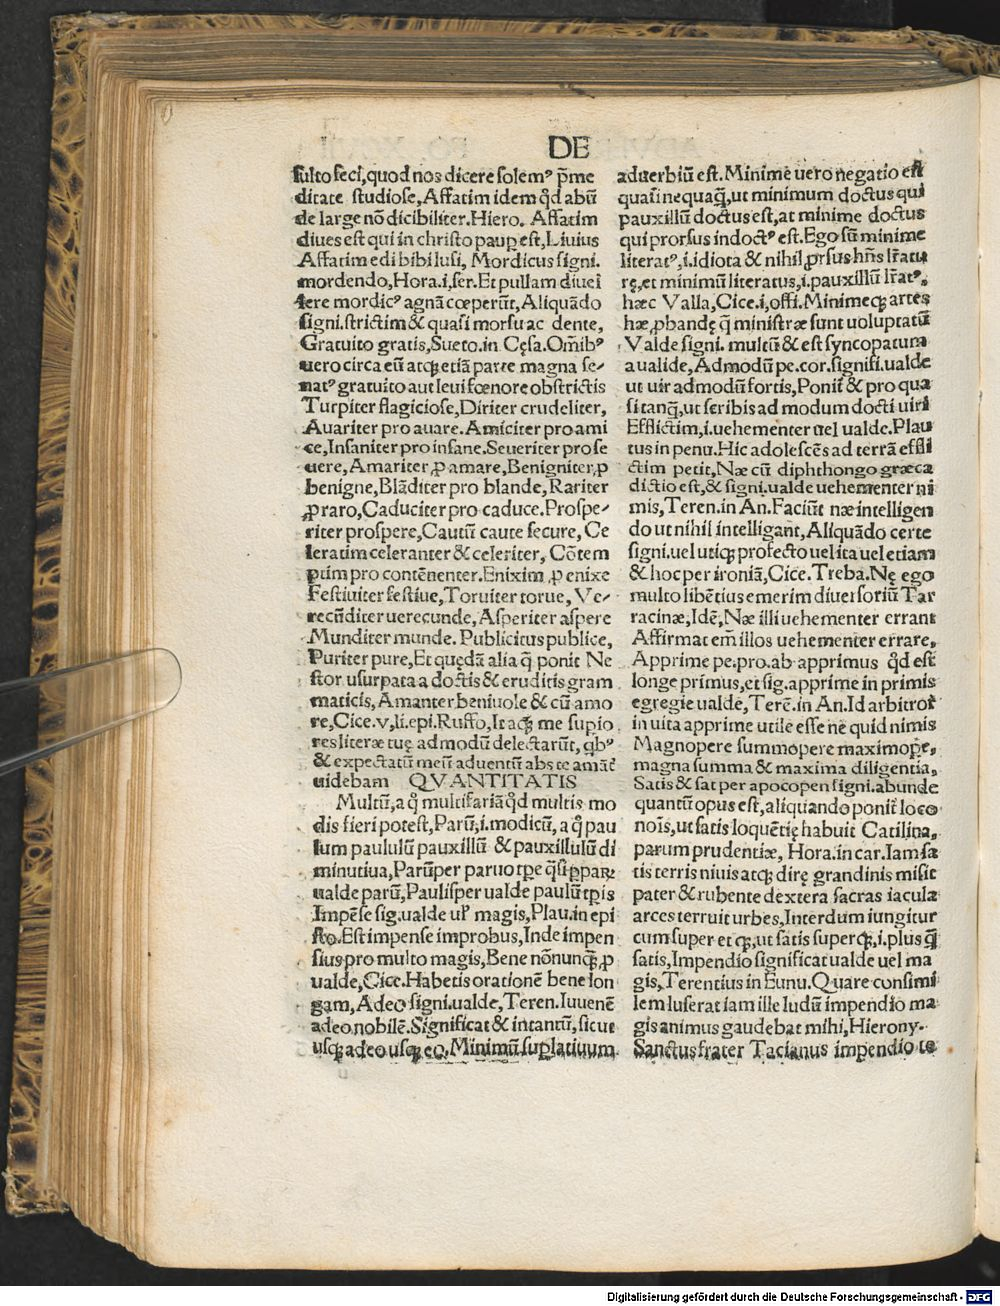 DE
sulto feci, quod nos dicere solemꝰ p̃me
ditate studiose, Affatim idem qđ abũ
de large nõ dicibiliter. Hiero. Affatim
diues est qui in christo paup̱ est, Liuius
Affatim edi bibi lusi, Mordicus signi.
mordendo, Hora. i, ser. Et pullam diuei
tere mordicꝰ agnã cœperũt, Aliquãdo
signi. strictim & quasi morsu ac dente,
Gratuito gratis, Sueto. in Cęsa. Om̃ibꝰ
uero circa eũ atqꝫ etiã parte magna se⸗
natꝰ gratuito aut leui fœnore obstrictis
Turpiter flagiciose, Diriter crudeliter,
Auariter pro auare. Amiciter pro ami
ce, Insaniter pro insane. Seueriter pro se
uere, Amariter ꝓ amare, Benigniter, ꝓ
benigne, Blãditer pro blande, Rariter
ꝓ raro, Caduciter pro caduce. Prospe⸗
riter prospere, Cautũ caute secure, Ce
leratim celeranter & celeriter, Cõtem
ptim pro contẽnenter. Enixim ꝓ enixe
Festiuiter festiue, Toruiter torue, Ve⸗
recũditer uerecunde, Asperiter aspere
Munditer munde. Publicitus publice,
Puriter pure, Et quędã alia q̃ ponit Ne
stor usurpata a doctis & eruditis gram
maticis, Amanter beniuole & cũ amo
re, Cice. v, li. epi. Ruffo, Itaqꝫ me supio
res literæ tuę admodũ delectarũt, qbꝰ
& expectatũ meũ aduentũ abs te amãt̃
uidebam QVANTITATIS
Multũ, a q̊ multifariã qđ multis mo
dis fieri potest, Parũ, i. modicũ, a q̊ pau
lum paululũ pauxillũ & pauxillulũ di
minutiua, Parũper paruo tp̱e q̃si ꝑ parꝝ
ualde parũ, Paulisper ualde paulũ tp̱is
Impẽse sig. ualde uł magis, Plau. in epi
sto. Est impense improbus, Inde impen
sius pro multo magis, Bene nõnunqꝫ, ꝓ
ualde, Cice. Habetis orationẽ bene lon
gam, Adeo signi. ualde, Teren. Iuuenẽ
adeo nobilẽ. Significat & intantũ, sicut
usqꝫ adeo usqꝫ eo. Minimũ suplatiuum
aduerbiũ est. Minime uero negatio est
quasi nequaq̃, ut minimum doctus qui
pauxillũ doctus est, at minime doctus
qui prorsus indoctꝰ est. Ego sũ minime
literatꝰ, i. idiota & nihil ꝓrsus hñs lr̃atu
rę, et minimũ literatus, i. pauxillũ lr̃atꝰ.
hæc Valla, Cice. i, offi. Minimeqꝫ artes
hæ, ꝓbandę q̃ ministræ sunt uoluptatũ
Valde signi. multũ & est syncopatum
a ualide, Admodũ pe. cor. signifi. ualde
ut uir admodũ fortis, Ponit̃ & pro qua
si tanq̃, ut scribis ad modum docti uiri
Efflictim, i. uehementer uel ualde. Plau
tus in penu. Hic adolescẽs ad terrã effli
ctim petit, Næ cũ diphthongo græca
dictio est, & signi. ualde uehementer ni
mis, Teren. in An. Faciũt næ intelligen
do ut nihil intelligant, Aliquãdo certe
signi. uel utiqꝫ profecto uel ita uel etiam
& hoc per ironiã, Cice. Treba. Nę ego
multo libẽtius emerim diuersoriũ Tar
racinæ, Idẽ, Næ illi uehementer errant
Affirmat em̃ illos uehementer errare,
Apprime pe. pro. ab apprimus qđ est
longe primus, et sig. apprime in primis
egregie ualde, Terẽ. in An. Id arbitror
in uita apprime utile esse ne quid nimis
Magnopere summopere maximop̱e,
magna summa & maxima diligentia,
Satis & sat per apocopen signi. abunde
quantũ opus est, aliquando ponit̃ loco
noĩs, ut satis loquẽtię habuit Catilina,
parum prudentiæ, Hora. in car. Iam sa
tis terris niuis atqꝫ dirę grandinis misit
pater & rubente dextera sacras iacula
arces terruit urbes, Interdum iungitur
cum super et qꝫ, ut satis superqꝫ, i. plus q̃
satis, Impendio significat ualde uel ma
gis, Terentius in Eunu. Quare consimi
lem luserat iam ille ludũ impendio ma
gis animus gaudebat mihi, Hierony.
Sanctus frater Tacianus impendio te
Digitalisierung gefördert durch die Deutsche Forschungsgemeinschaft - DFG